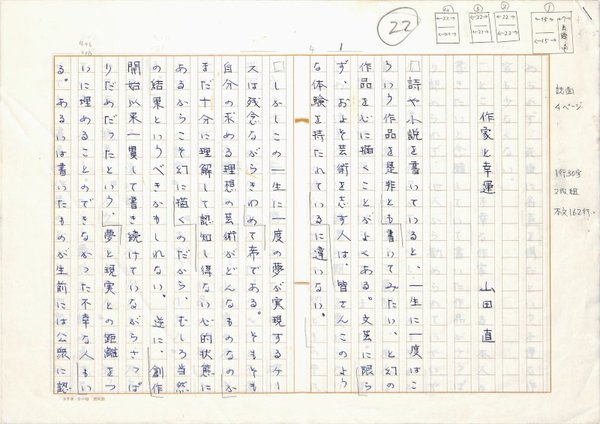 22
作家と幸運
山田 直
詩や小説を書いていると、一生に一度はこ
ういう作品を是非とも書いてみたい、と幻の
作品を心に描くことがよくある。文芸に限ら
ず、およそ芸術を志す人は、皆さんこのよう
な体験を持たれているに違いない。
しかしこの一生に一度の夢が実現するケー
スは残念ながらきわめて希である。そもそも
自分の求める理想の芸術がどんなものなのか
まだ十分に理解して認知し得ない心的状態に
あるからこそ幻に描くのだから、むしろ当然
の結果というべきかもしれない。逆に、創作
開始以来一貫して書き続けていながらさっぱ
りだめだったという、夢と現実との距離をつ
いに埋めることのできなかった不幸な人もい
る。あるいは書いたものが生前には公衆に認
誌面
4ページ
1行30字
2段組
本文162行
1
4